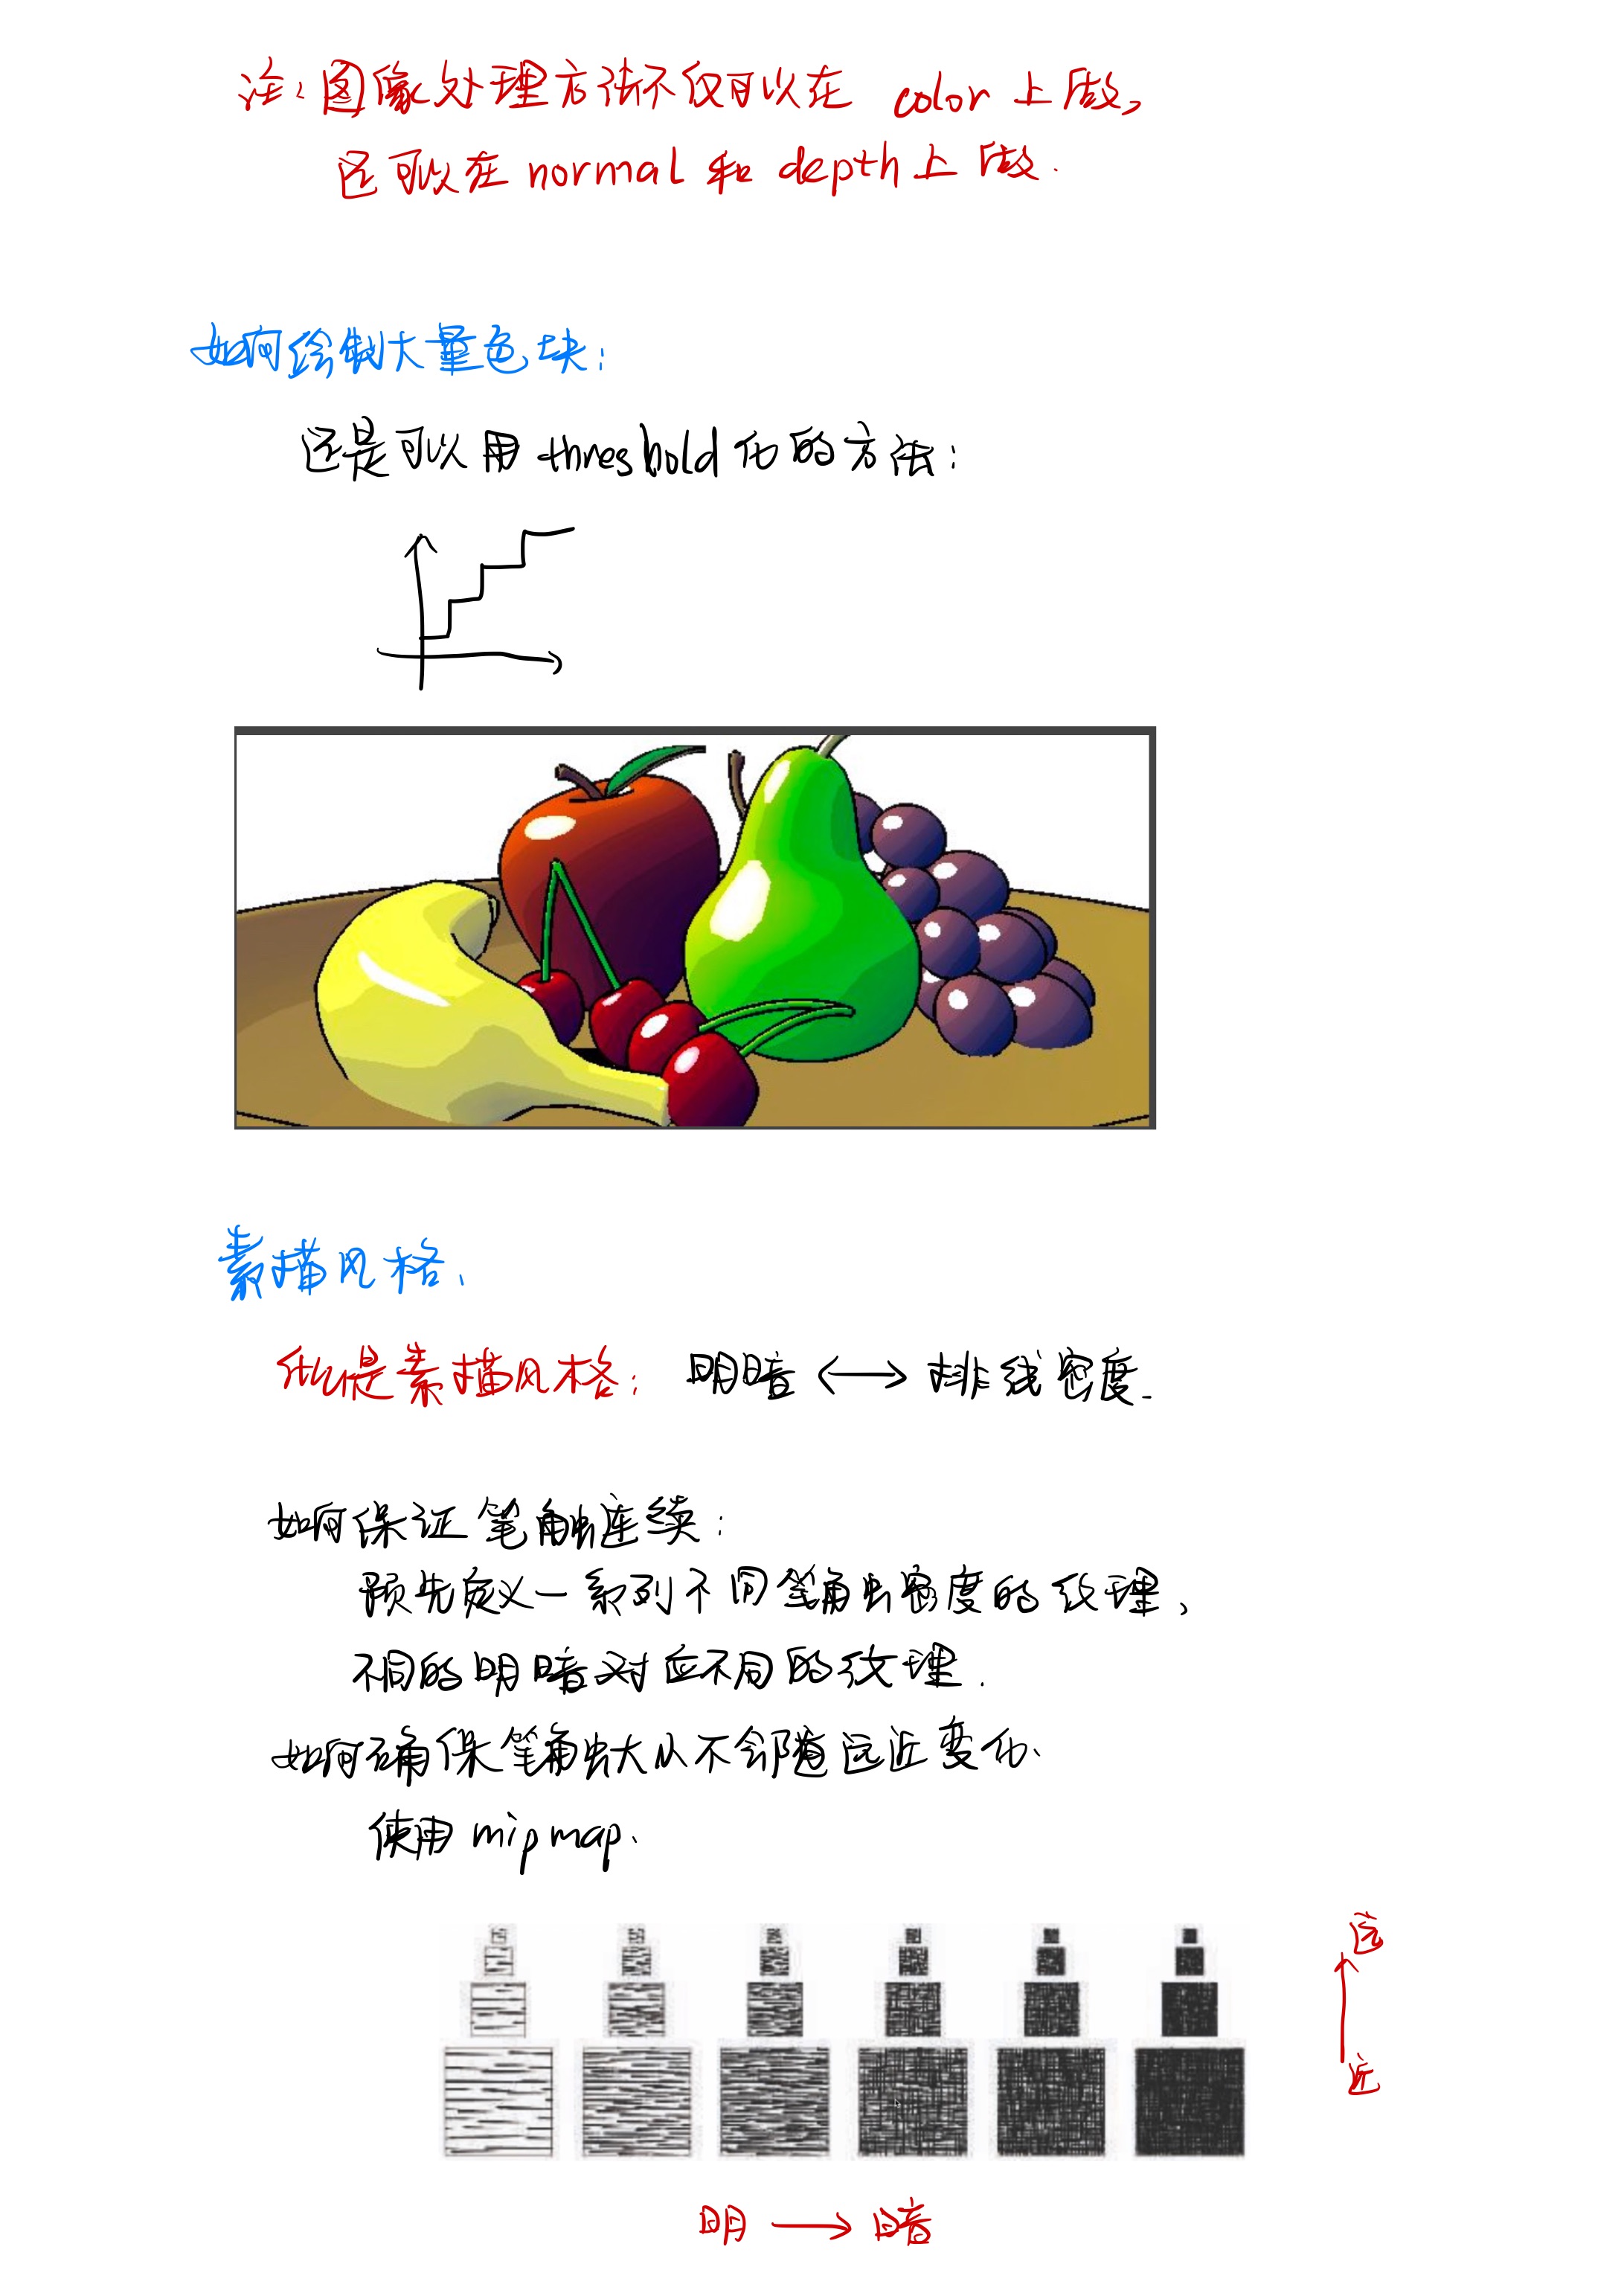 注：图像处理方法不仅可以在 color 上做，
还可以在 normal 和 depth 上做.
如何绘制大量色块：
还是可以用 threshold 化的方法：
素描风格：
什么是素描风格： 明暗 ⟷ 排线密度.
如何保证笔触连续：
预先定义一系列不同笔触密度的纹理、
不同的明暗对应不同的纹理.
如何确保笔触大小不会随远近变化、
使用 mipmap、
远
近
明 ⟶ 暗